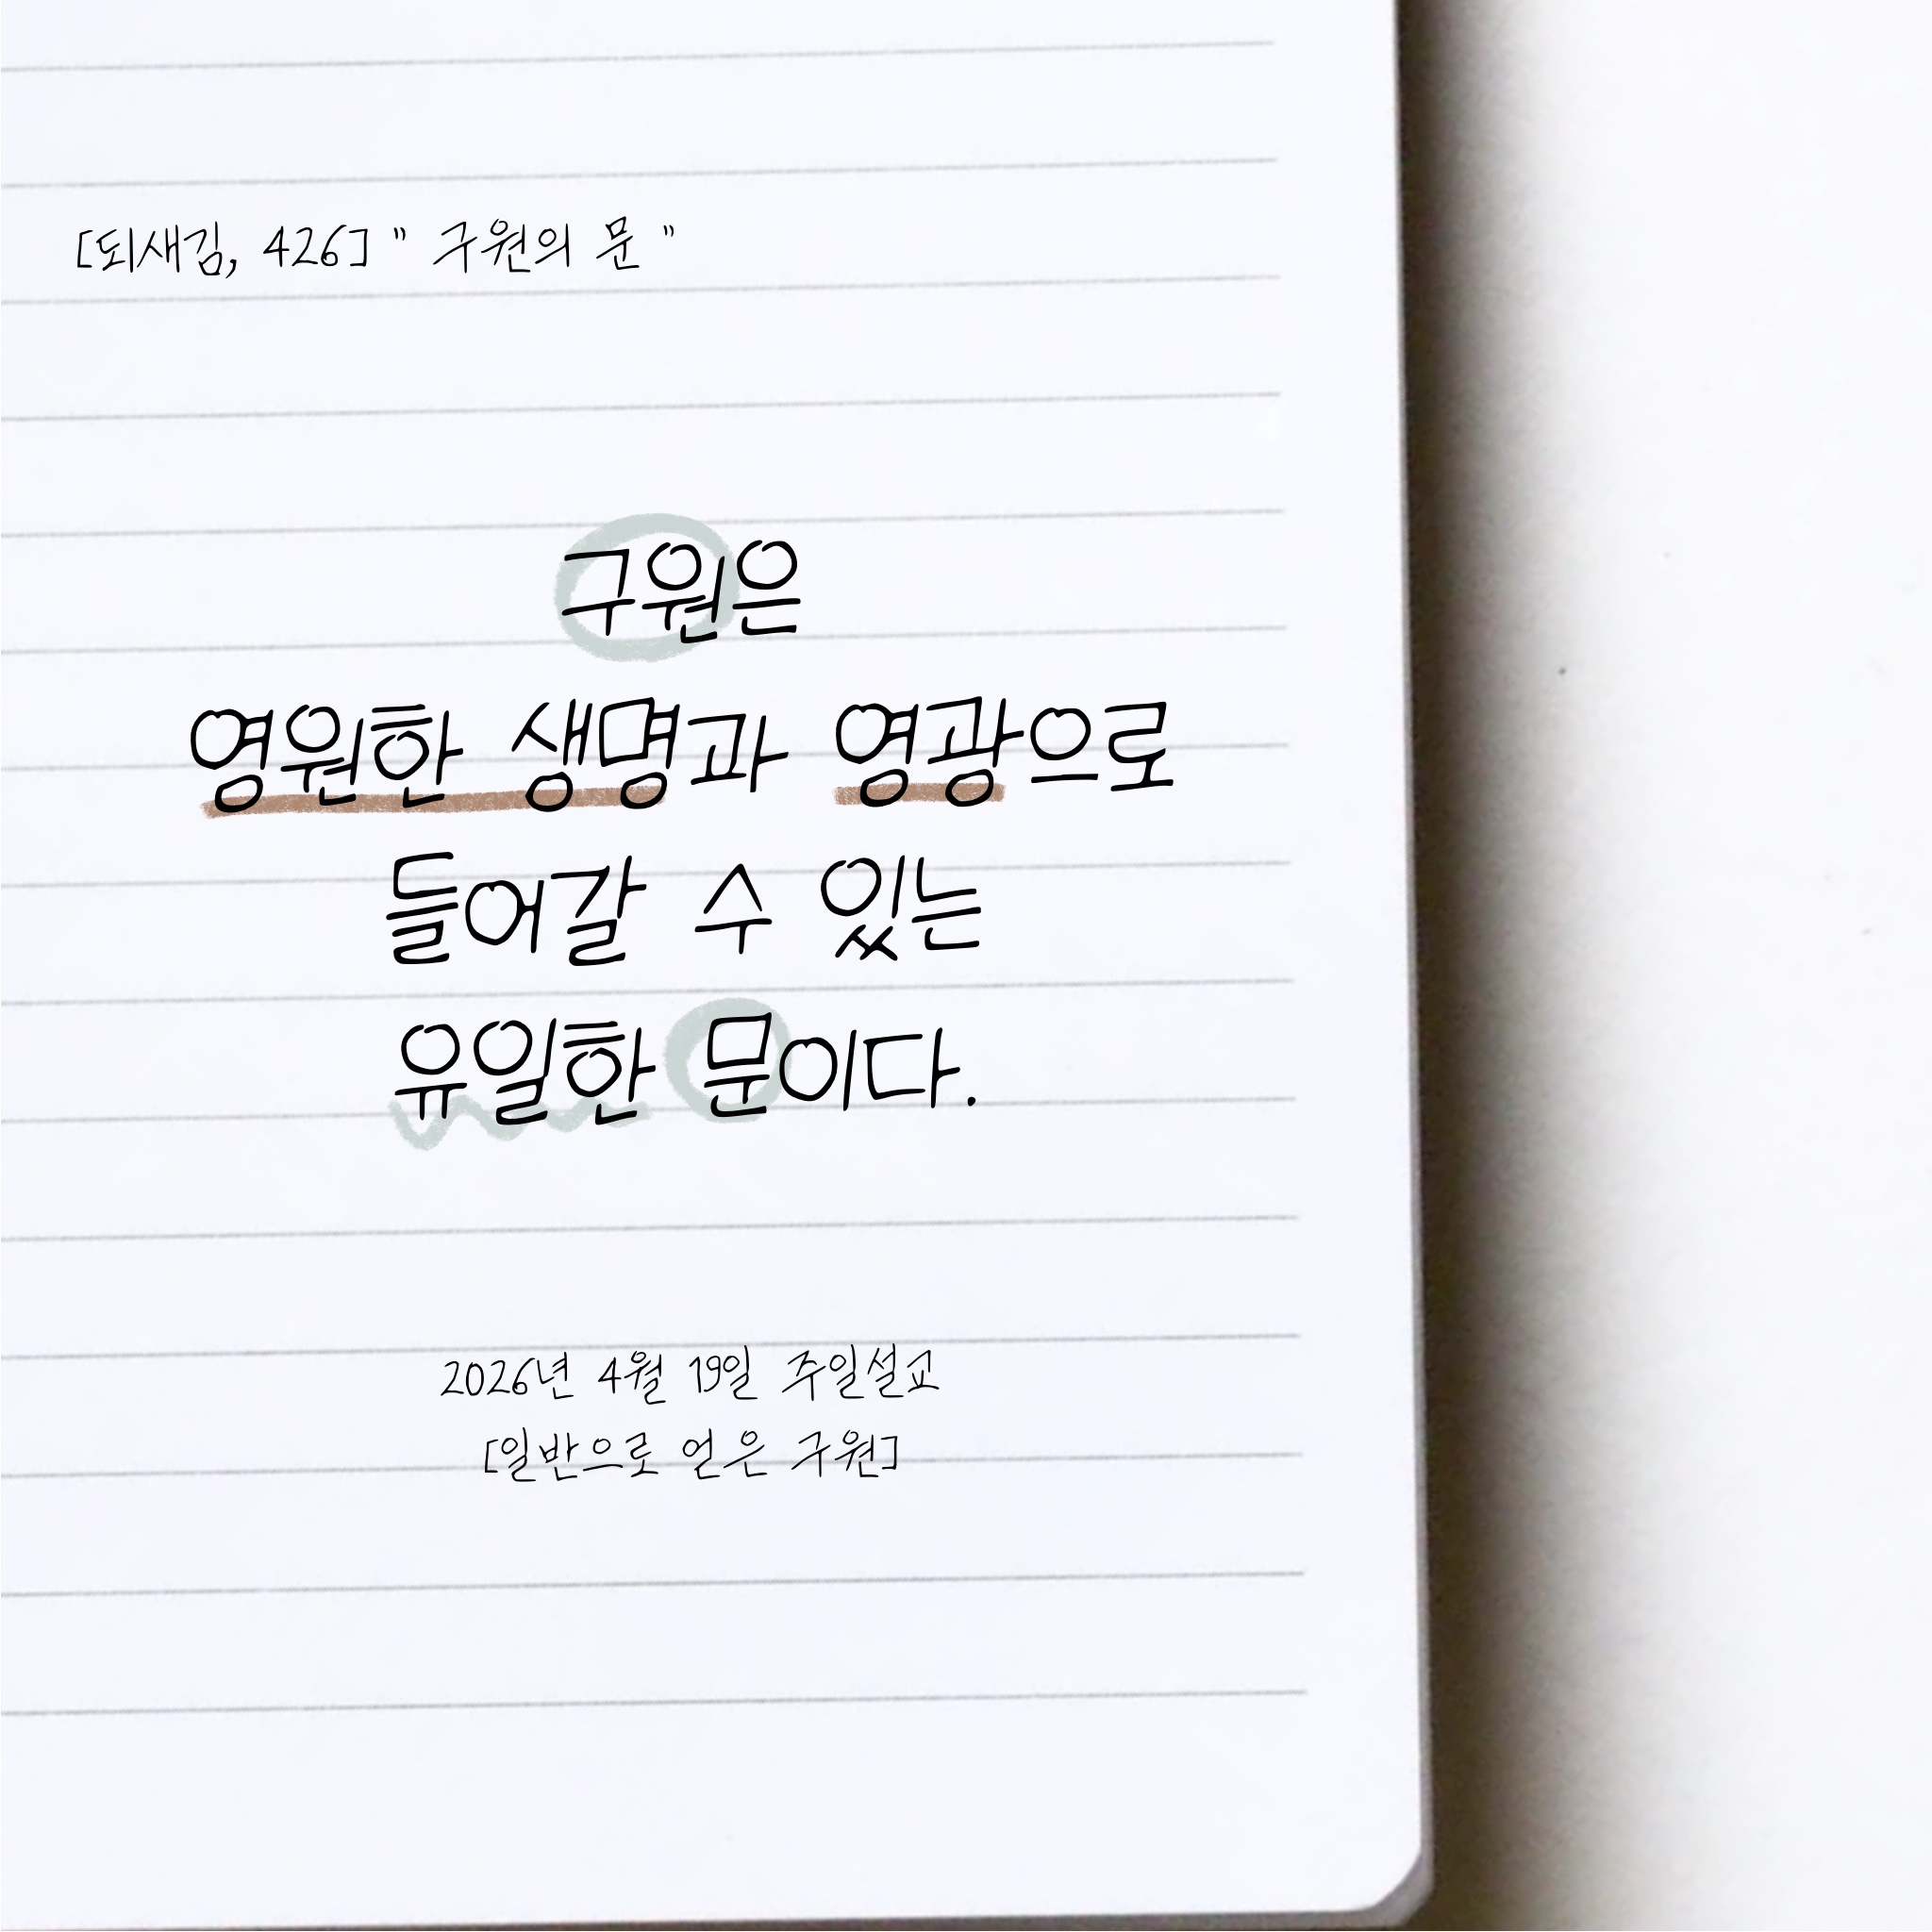 [되새김, 426] " 구원의 문 "
구원은
영원한 생명과 영광으로
들어갈 수 있는
유일한 문이다.
2026년 4월 19일 주일설교
[일반으로 얻은 구원]